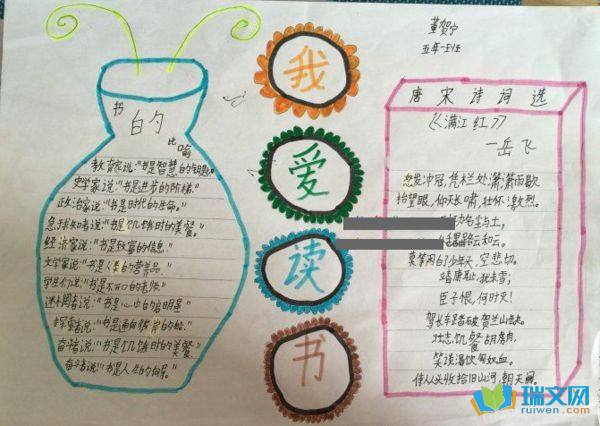 董贺宁
五年一班
书
白勺
比喻
教育家说:"书是智慧的钥匙。"
史学家说:"书是进步的阶梯。"
政治家说:"书是时代的生命。"
急于求知者说:"书是饥饿时的美餐。
经济家说:"书是致富的信息。
文学家说:"书是人类的营养品
学生们说:"书是不开口的老师
迷惘者说:"书是心中的启明星
探索者说:"书是通向彼岸的船。
奋斗者说:"书是饥饿时的美餐
奋斗者说:"书是人生的向导。
我
爱
读
书
唐宋诗词选
《满江红》
—岳飞
怒发冲冠,凭栏处,潇潇雨歇
抬望眼,仰天长啸,壮怀激烈。
功名尘与土,
路云和云。
莫等闲白了少年头,空悲切。
靖康耻,犹未雪;
臣子恨,何时灭!
驾长车踏破贺兰山缺。
壮志饥餐胡虏肉,
笑谈渴饮匈奴血。
待从头收拾旧山河,朝天阙。
瑞文网
ruiwen.com